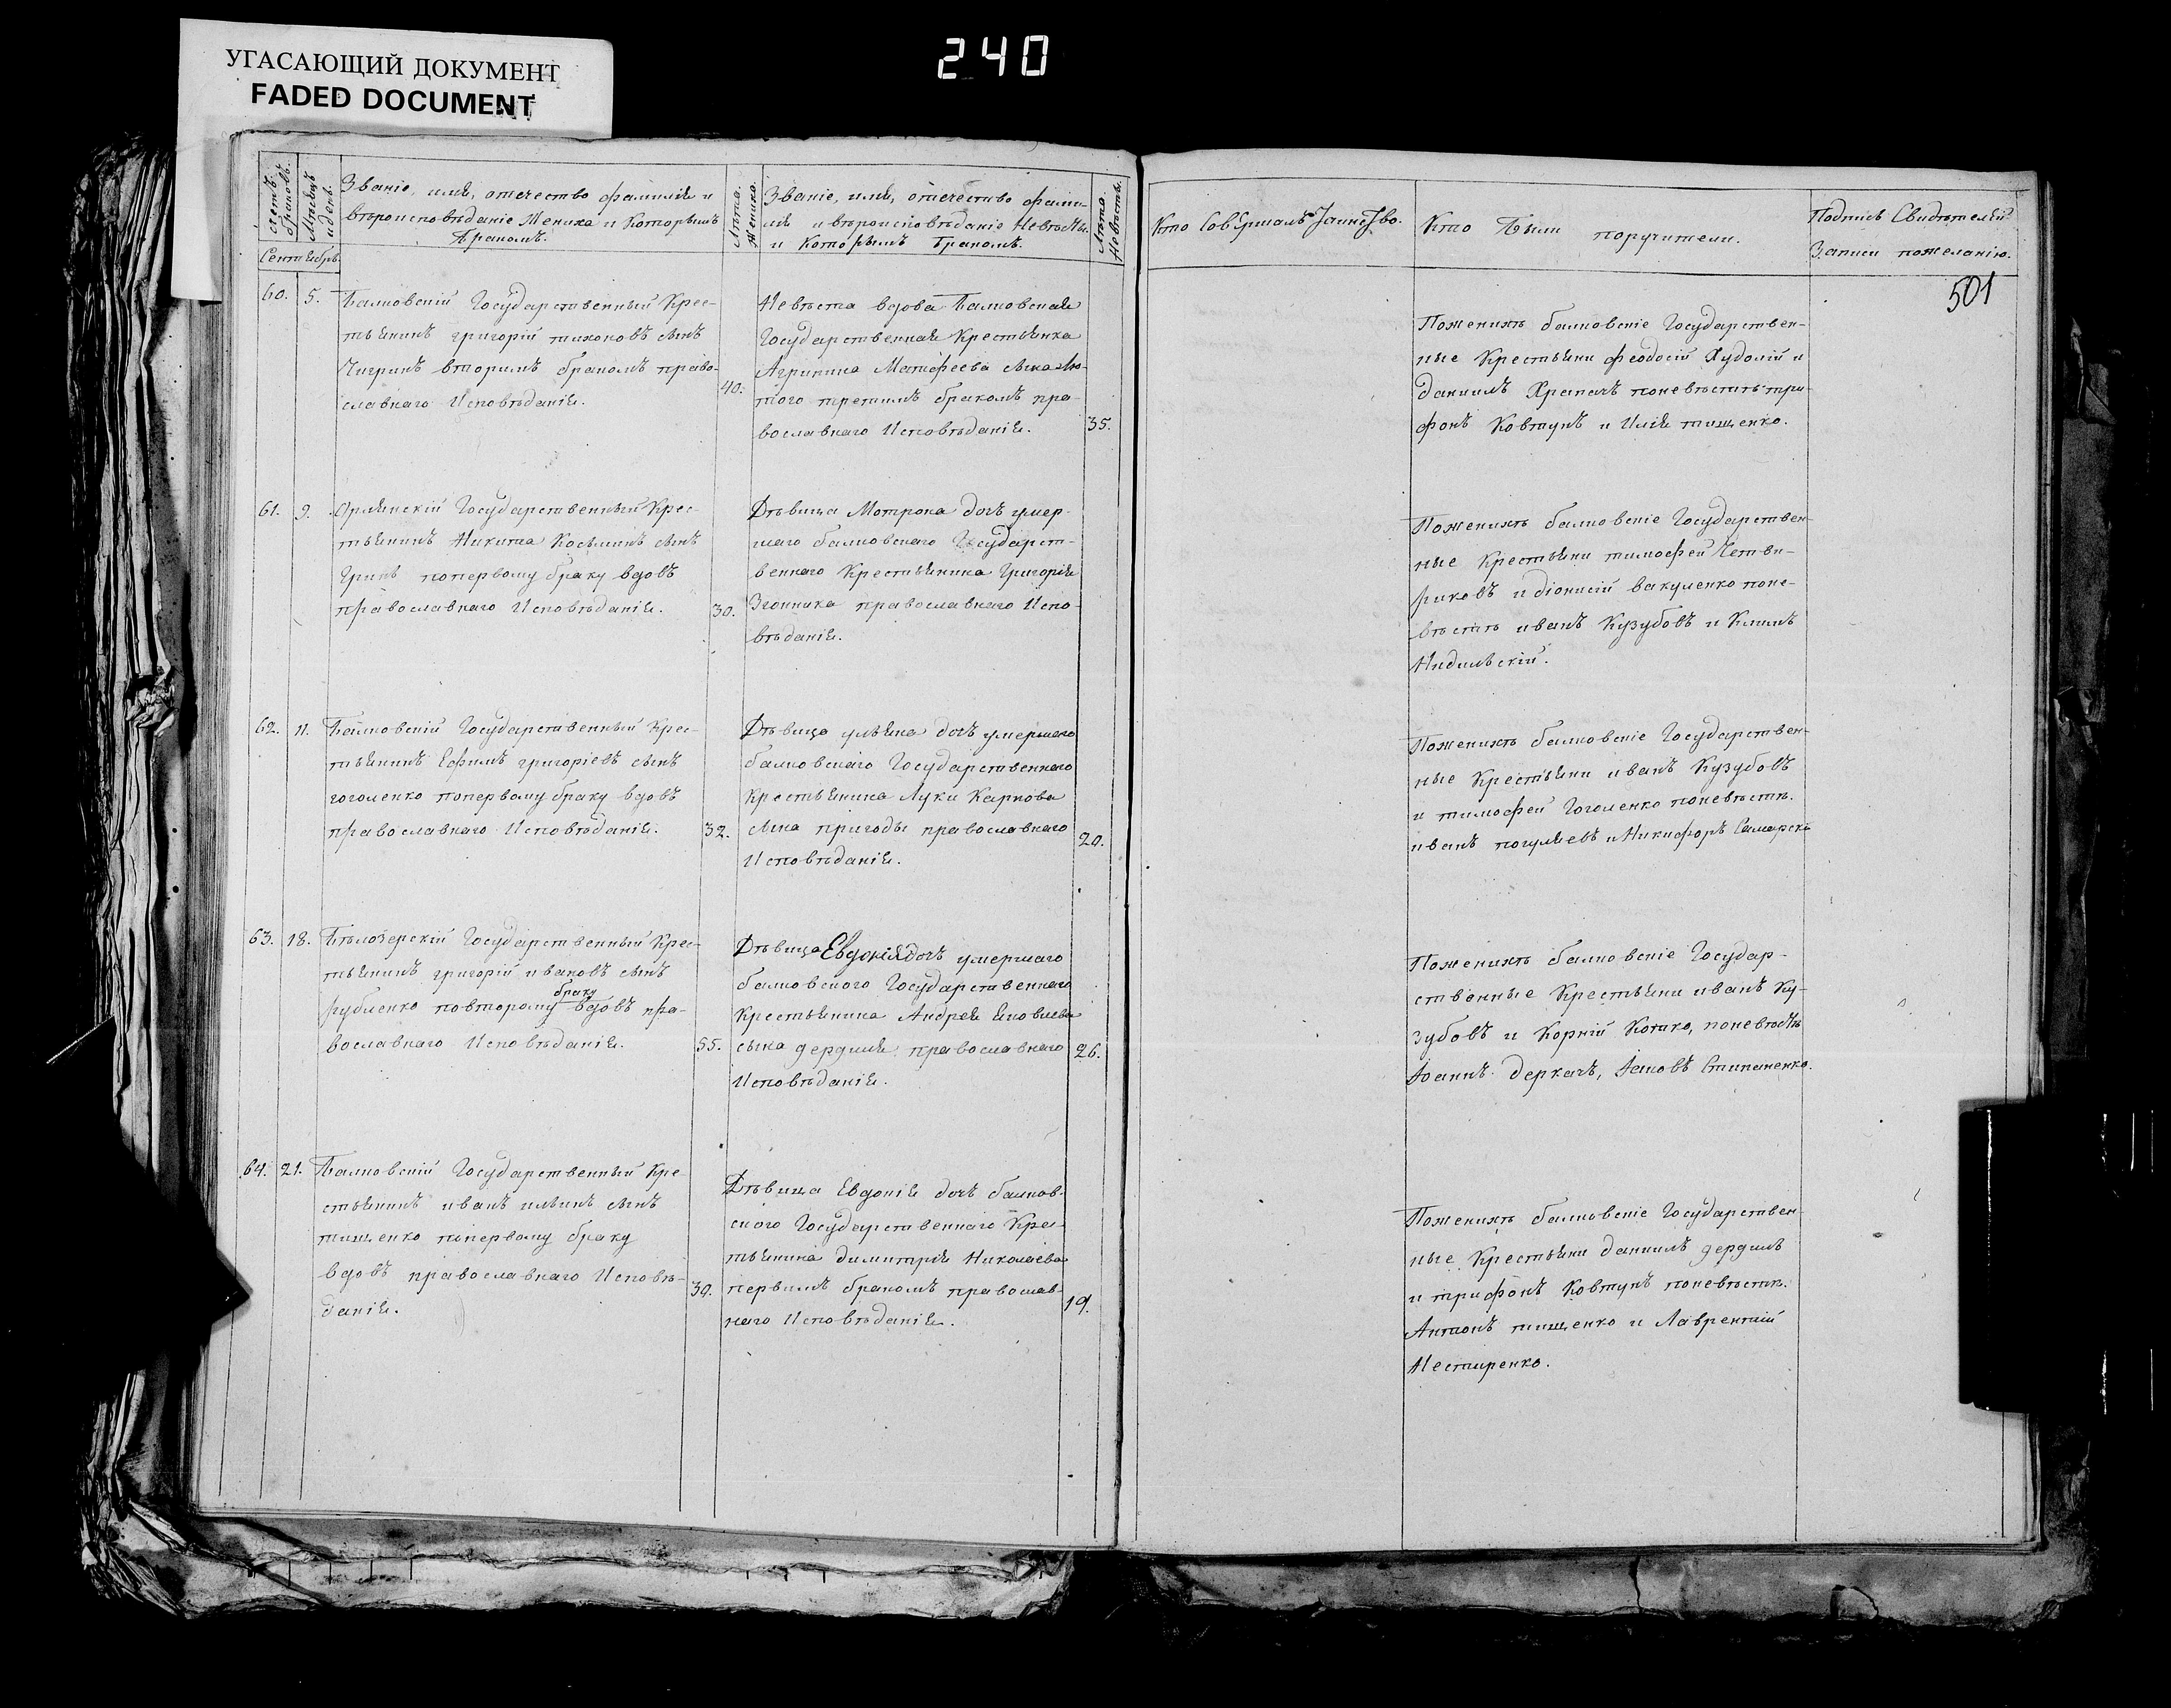 УГАСАЮЩИЙ ДОКУМЕНТ
FADED DOCUMENT
240
счетъ браковъ.
Мѣсяцъ и день.
Званіе, имя, отечество фамилія и
вѣроисповѣданіе Жениха и Которымъ
бракомъ.
Лѣта Жениха.
Званіе, имя, отечество фами-
лія и вѣроисповѣданіе Невѣсты
и Которымъ бракомъ.
Лѣта Невѣсты.
Кто Совершалъ Таинство.
Кто Были поручители.
Подпись Свидѣтелей
Записи пожеланію.
501
Сентябрь
60. 5.
Балковскій Государственный Крес-
тьянинъ григорій тихоновъ сынъ
Чигринъ вторимъ бракомъ право-
славнаго Исповѣданія.
40.
Невѣста вдова Балковская
Государственная Крестьянка
Агрипина Матфеева
того третимъ бракомъ пра-
вославнаго Исповѣданія.
35.
Поженихѣ балковскіе Государствен-
ные Крестьяни феодосій Худолій и
даниилъ Храпачъ поневѣстѣ три-
фонъ Ковтунъ и Илія тищенко.
61. 9.
Орлянскій Государственный Крес-
тьянинъ Никита Косьминъ сынъ
Гринь попервому браку вдовъ
православнаго Исповѣданія.
30.
Дѣвица Мотрона дочь умер-
шаго балковскаго Государст-
веннаго Крестьянина Григорія
Згонника православнаго Испо-
вѣданія.
Поженихѣ балковскіе Государствен-
ные Крестьяни тимофей Четве-
риковъ и діонисій вакуленко поне-
вѣстѣ иванъ Кузубовъ и Климъ
62. 11.
Балковскій Государственный Крес-
тьянинъ Ефимъ григоріевъ сынъ
гоголенко попервому браку вдовъ
православнаго Исповѣданія.
32.
Дѣвица ульяна дочь умершаго
балковскаго Государственнаго
Крестьянина Луки Карпова
сына пригоды православнаго
Исповѣданія.
20.
Поженихѣ балковскіе Государствен-
ные Крестьяни иванъ Кузубовъ
и тимофей Гоголенко поневѣстѣ.
иванъ погуляевъ и Никифоръ Самарскі
63. 18.
Бѣлозерскій Государственный Крес-
тьянинъ григорій ивановъ сынъ
браку
рубленко повторому вдовъ пра-
вославнаго Исповѣданія.
55.
Дѣвица Евдокія дочь умершаго
балковского Государственнаго
Крестьянина Андрея яковлева
сына дердиля православнаго
Исповѣданія.
26.
Поженихѣ балковскіе Государ-
ственные Крестьяни иванъ Ку-
зубовъ и Корній Котко, поневѣстѣ
Іоаннъ деркачъ, Іаковъ Стипаненко.
64. 21.
Балковскій Государственный Кре-
стьянинъ иванъ ильинъ сынъ
тищенко попервому браку
вдовъ православнаго Исповѣ-
данія.
30.
Дѣвица Евдокія дочь балков-
ского Государственнаго Крес-
тьянина димитрія Николаева
первимъ бракомъ православ-
наго Исповѣданія.
19.
Поженихѣ балковскіе Государствен-
ные Крестьяни даниилъ дердиль
и трифонъ Ковтунъ поневѣстѣ.
Антонъ тищенко и Лаврентій
Нестиренко.